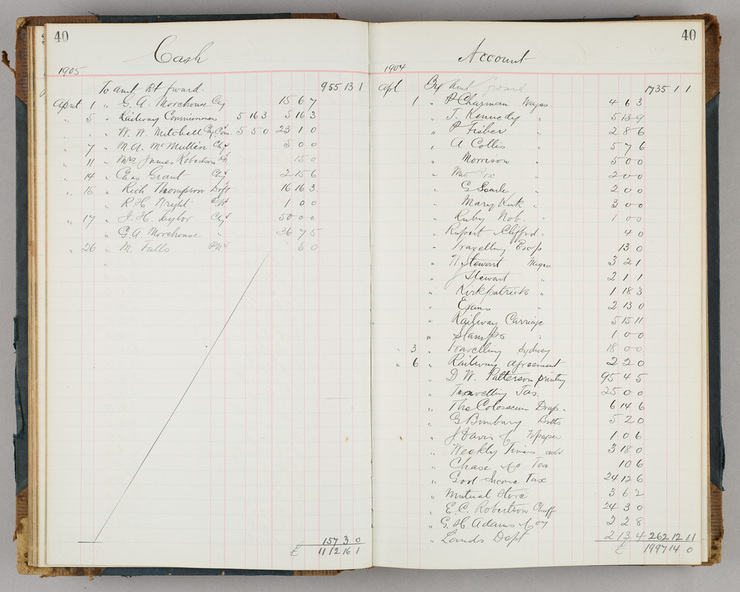 40
Cash
1905
To amt bt forward 955 13 1
April 1 " G. A. Morehouse 15 6 7
" 5 " Railway Commissioner 5 16 3 5 16 3
" W. W. Mitchell 5 5 0 23 1 0
" 7 " M. A. McMullin Chf 5 0 0
" 11 " Mrs James Robertson 15 0
" 14 " Eas Grant 2 15 6
" 15 " Rich Thompson Dft 16 16 3
" R H Wright 1 0 0
" 17 " J. H. Taylor 50 0 0
" G. A. Morehouse 36 7 5
" 26 " M. Falls 5 0
157 3 0
£ 1112 16 1
40
Account
1904
Apl By Amt forward 1735 1 1
1 " P Chapman Wages 4 6 3
" T. Kennedy " 5 13 9
" P Fisher " 2 8 6
" A Collis " 5 7 6
" Morrison " 5 0 0
" 2 0 0
" G Searle " 2 0 0
" Mary Kirk " 3 0 0
" Ruby Nob " 1 0 0
" Rupert Clifford " 4 0
" Travelling Exps 13 0
" N Stewart Wages 3 2 1
" J Stewart " 2 1 1
" Kirkpatrick " 1 18 3
" Evans " 2 13 0
" Railway Carriage 5 15 11
" Stamps 1 0 0
" 3 " Travelling Sydney 18 0 0
" 6 " Railway Agreement 2 2 0
" D. W. Patterson printing 95 4 5
" Travelling Tas. 25 0 0
" The Colosseum Drap. 6 14 6
" G Bunbury 5 2 0
" J Davis 1 0 6
" Weekly Times 3 18 0
" Chase Tea 10 6
" Govt Income Tax 24 12 6
" Mutual Store 3 6 2
" E. C. Robertson Chaff 24 3 0
" G. H. Adams 2 2 8
" Lands Dept 2 13 4 262 12 11
£ 1997 14 0